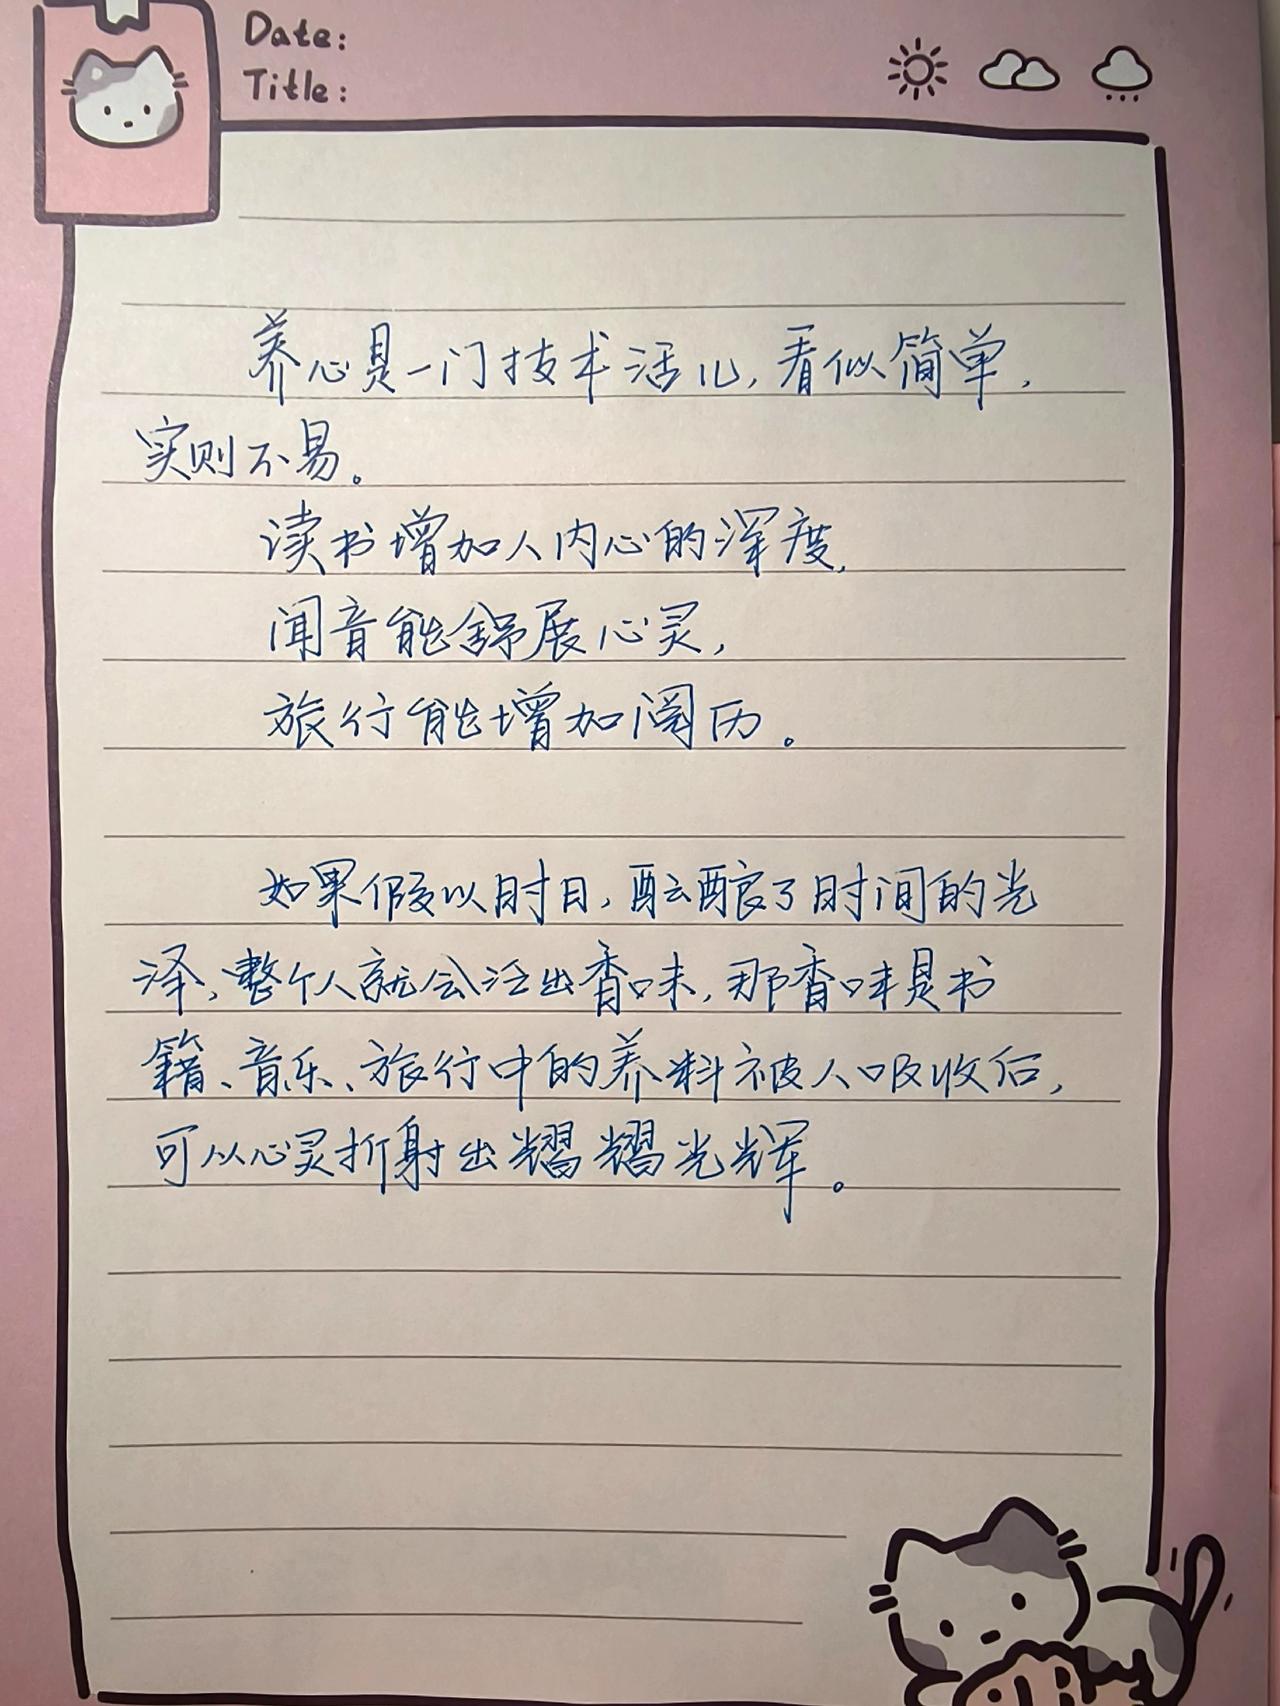 Date:
Title:
养心是一门技术活儿,看似简单,
实则不易。
读书增加人内心的深度,
闻音能舒展心灵,
旅行能增加阅历。
如果假以时日,酝酿了时间的光
泽,整个人就会泛出香味,那香味是书
籍、音乐、旅行中的养料被人吸收后,
可以心灵折射出耀耀光辉。